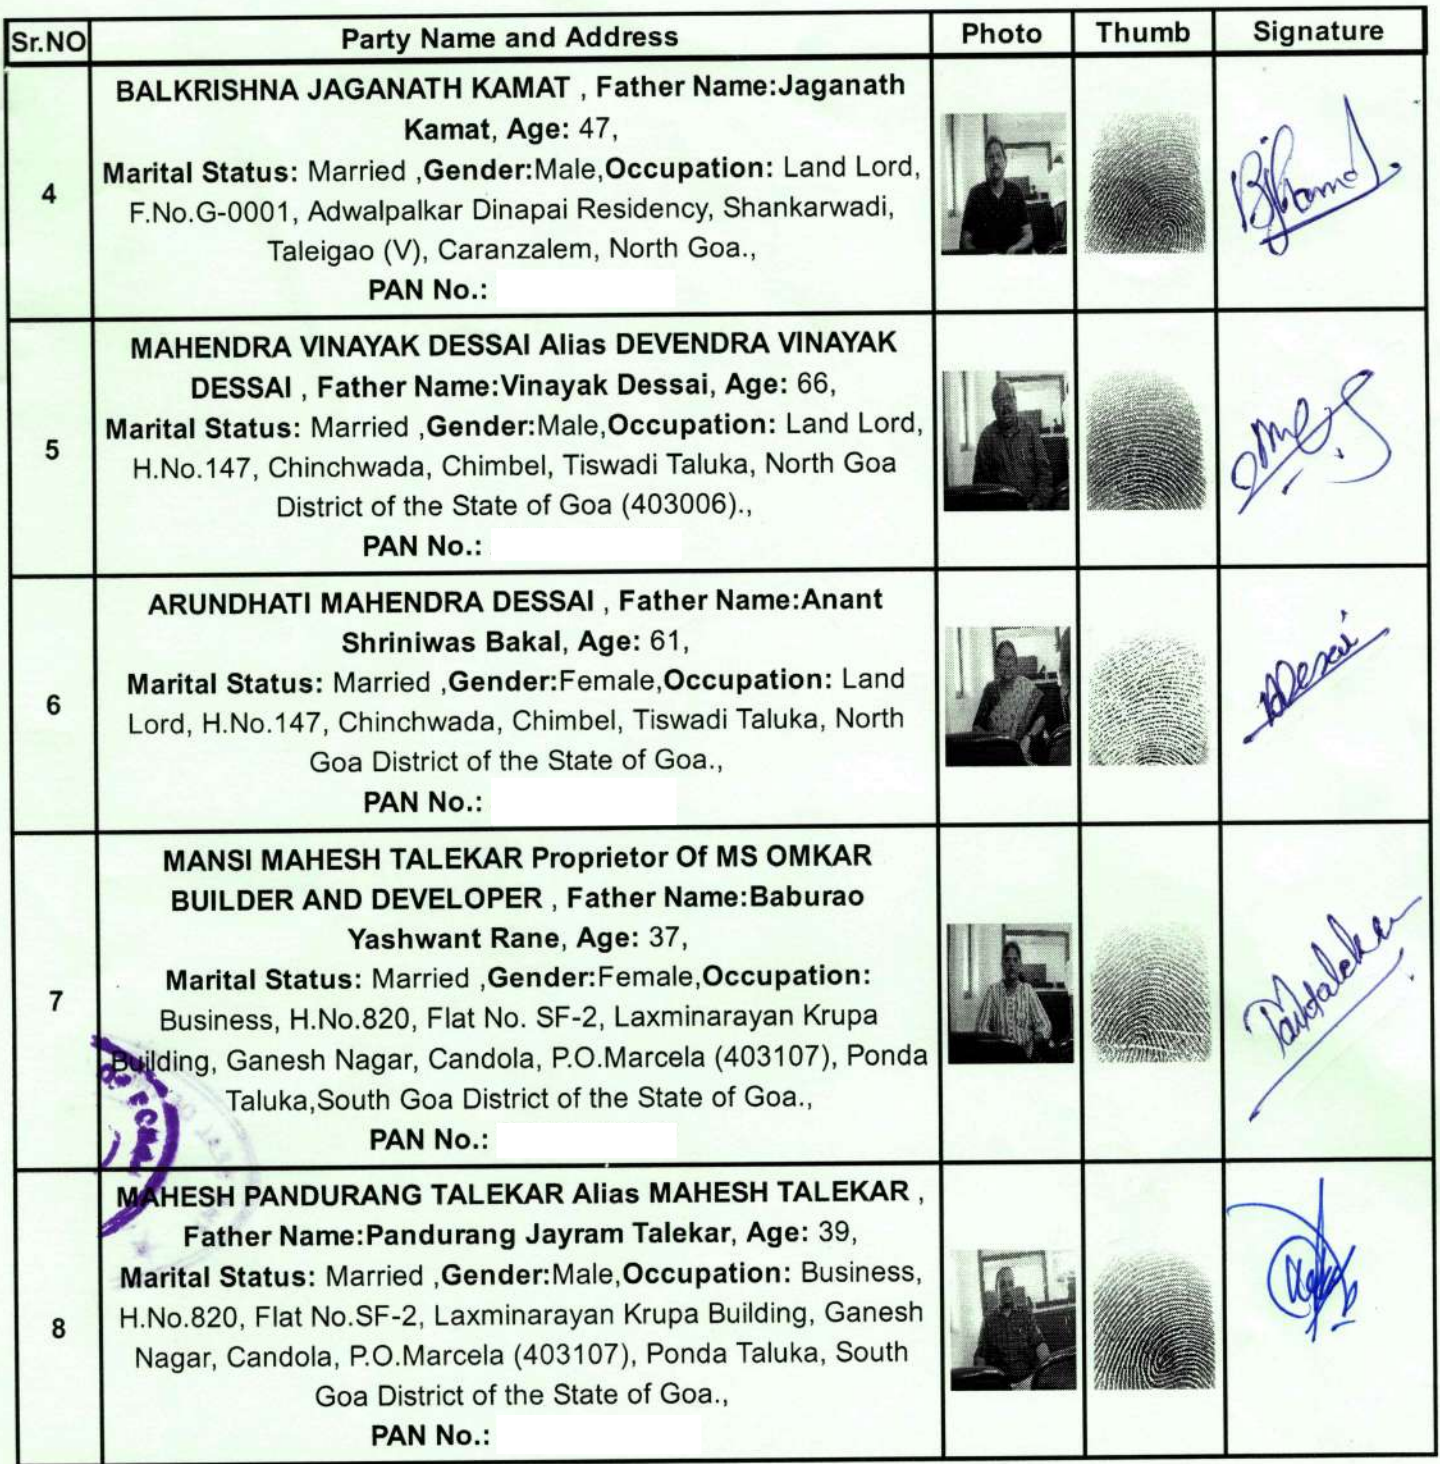 Sr.NO Party Name and Address Photo Thumb Signature
BALKRISHNA JAGANATH KAMAT , Father Name:Jaganath
Kamat, Age: 47,
Marital Status: Married ,Gender:Male,Occupation: Land Lord,
4
F.No.G-0001, Adwalpalkar Dinapai Residency, Shankarwadi,
Taleigao (V), Caranzalem, North Goa.,
PAN No.:
MAHENDRA VINAYAK DESSAI Alias DEVENDRA VINAYAK
DESSAI , Father Name:Vinayak Dessai, Age: 66,
Marital Status: Married ,Gender:Male,Occupation: Land Lord,
5
H.No.147, Chinchwada, Chimbel, Tiswadi Taluka, North Goa
District of the State of Goa (403006).,
PAN No.:
ARUNDHATI MAHENDRA DESSAI , Father Name:Anant
Shriniwas Bakal, Age: 61,
Marital Status: Married ,Gender:Female,Occupation: Land
6
Lord, H.No.147, Chinchwada, Chimbel, Tiswadi Taluka, North
Goa District of the State of Goa.,
PAN No.:
MANSI MAHESH TALEKAR Proprietor Of MS OMKAR
BUILDER AND DEVELOPER , Father Name:Baburao
Yashwant Rane, Age: 37,
Marital Status: Married ,Gender:Female,Occupation:
7
Business, H.No.820, Flat No. SF-2, Laxminarayan Krupa
Building, Ganesh Nagar, Candola, P.O.Marcela (403107), Ponda
Taluka,South Goa District of the State of Goa.,
PAN No.:
MAHESH PANDURANG TALEKAR Alias MAHESH TALEKAR ,
Father Name:Pandurang Jayram Talekar, Age: 39,
Marital Status: Married ,Gender:Male,Occupation: Business,
8
H.No.820, Flat No.SF-2, Laxminarayan Krupa Building, Ganesh
Nagar, Candola, P.O.Marcela (403107), Ponda Taluka, South
Goa District of the State of Goa.,
PAN No.: